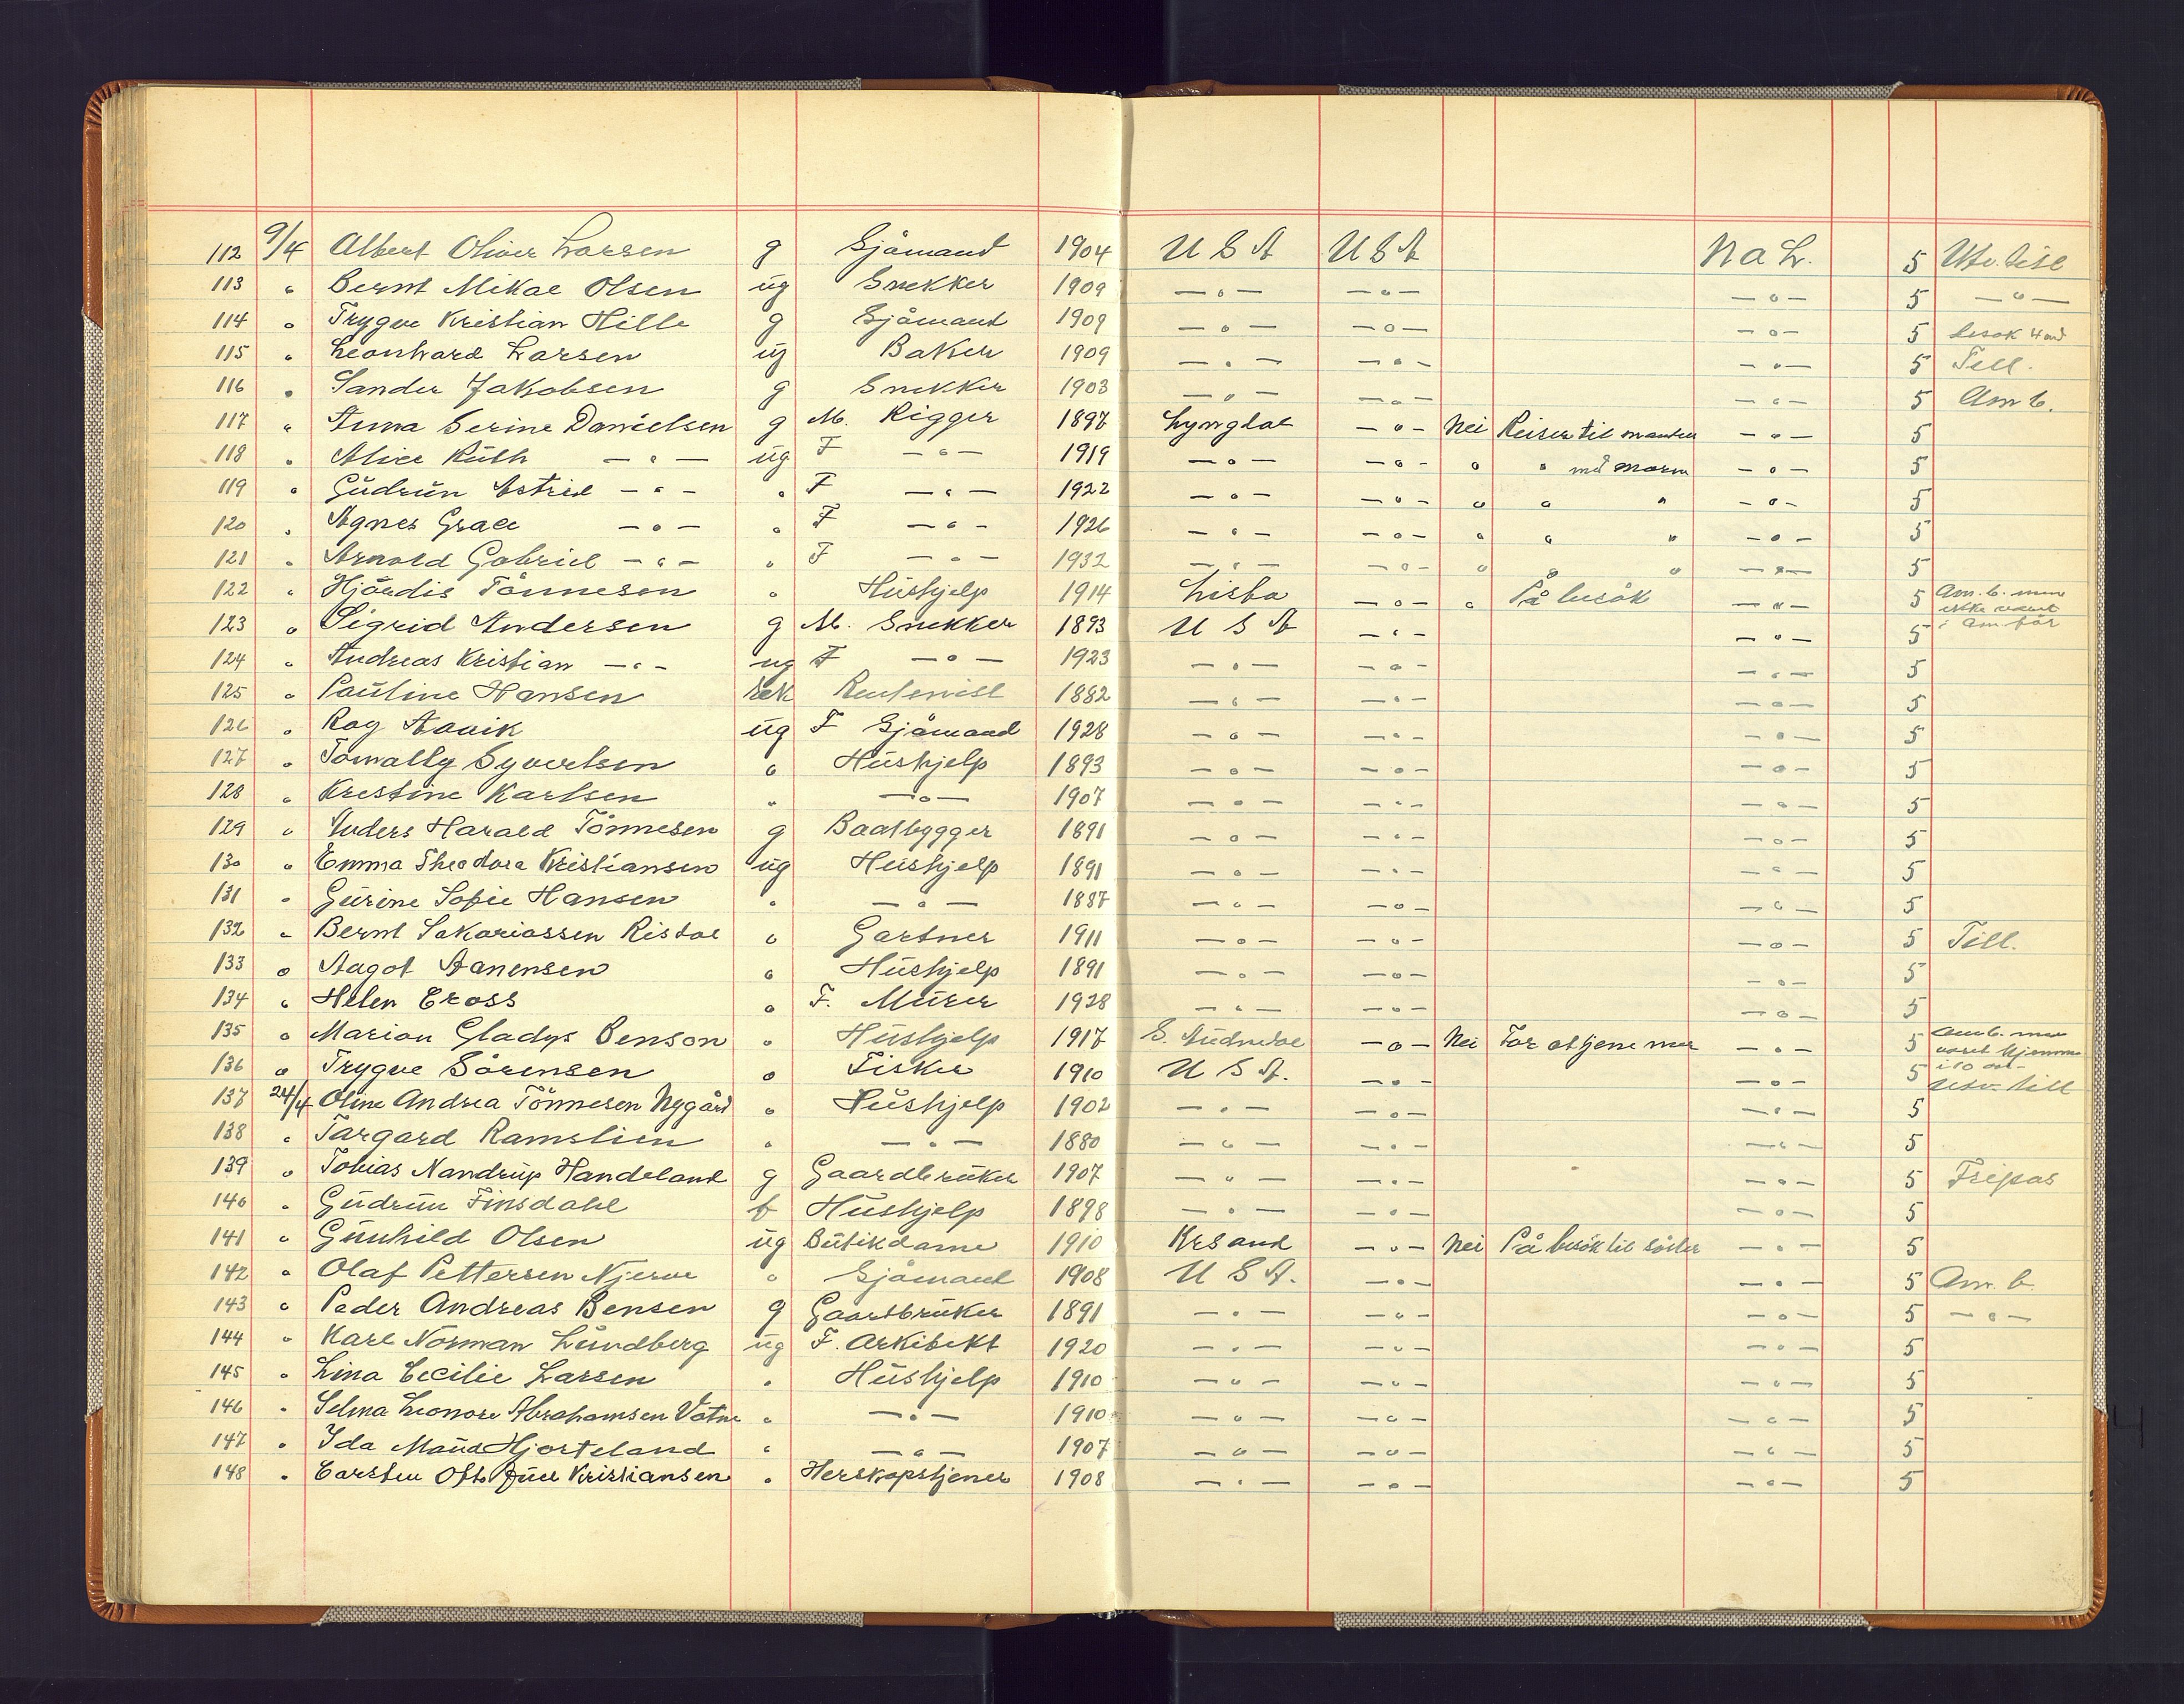 112 9/4 Albert Oliver Larsen g Sjømand 1904 U S A U S A N a L. 5 Utv. till
113 " Bernt Mikal Olsen ug Snekker 1909 — " — — " — — " — 5 — " —
114 " Trygve Kristian Hille g Sjømand 1909 — " — — " — — " — 5 besøk 4 md
115 " Leonhard Larsen ug Baker 1909 — " — — " — — " — 5 Till.
116 " Sander Jakobsen g Snekker 1903 — " — — " — — " — 5 Am b.
117 " Anna Serine Danielsen g M. Rigger 1897 Lyngdal — " — Nei Reiser til manden — " — 5
118 " Alice Ruth — " — ug F — " — 1919 — " — — " — " " med moren — " — 5
119 " Gudrun Astrid — " — " F — " — 1922 — " — — " — " " " — " — 5
120 " Agnes Grace — " — " F — " — 1926 — " — — " — " " " — " — 5
121 " Arnold Gabriel — " — " F — " — 1932 — " — — " — " " " — " — 5
122 " Hjørdis Tønnesen " Hushjelp 1914 Lista — " — " På besøk — " — 5 Am. b. men ikke vært i am. før
123 " Sigrid Andersen g M. Snekker 1893 U S A — " — — " — 5
124 " Andreas Kristian — " — ug F — " — 1923 — " — — " — — " — 5
125 " Pauline Hansen Rentenist 1882 — " — — " — — " — 5
126 " Roy Aavik ug F Sjømand 1928 — " — — " — — " — 5
127 " Syvertsen " Hushjelp 1893 — " — — " — — " — 5
128 " Krestine Karlsen " — " — 1907 — " — — " — — " — 5
129 " Anders Harald Tønnesen g Baatbygger 1891 — " — — " — — " — 5
130 " Emma Theodora Kristiansen ug Hushjelp 1891 — " — — " — — " — 5
131 " Gurine Sofie Hansen " — " — 1887 — " — — " — — " — 5
132 " Bernt Sakariassen Risdal " Gartner 1911 — " — — " — — " — 5 Till.
133 " Aagot Aanensen " Hushjelp 1891 — " — — " — — " — 5
134 " Helen Cross " F. Murer 1928 — " — — " — — " — 5
135 " Marion Gladys Benson " Hushjelp 1917 S. Audnedal — " — Nei For at tjene mer — " — 5 Am b. men været hjemme i 10 aar
136 " Trygve Sørensen " Fisker 1910 U S A. — " — — " — 5 Utv. till
137 24/4 Oline Andrea Tønnesen Nygård " Hushjelp 1902 — " — — " — — " — 5
138 " Targard Ramslien " — " — 1880 — " — — " — — " — 5
139 " Tobias Nandrup Handeland g Gaardbruker 1907 — " — — " — — " — 5 Fripas
140 " Gudrun Finsdahl f Hushjelp 1898 — " — — " — — " — 5
141 " Gunhild Olsen ug Butikdame 1910 Krsand — " — Nei På besøk til søster — " — 5
142 " Olaf Pettersen Njerve " Sjømand 1908 U S A. — " — — " — 5 Am. b.
143 " Peder Andreas Bensen g Gaardbruker 1891 — " — — " — — " — 5 — " —
144 " Karl Norman Lundberg ug F. Arkitekt 1920 — " — — " — — " — 5
145 " Lina Cecilie Larsen " Hushjelp 1910 — " — — " — — " — 5
146 " Selma Leonore Abrahamsen Vatne " — " — 1910 — " — — " — — " — 5
147 " Ida Maud Hjorteland " — " — 1907 — " — — " — — " — 5
148 " Carsten Otto Juel Kristiansen " Herskapstjener 1908 — " — — " — — " — 5